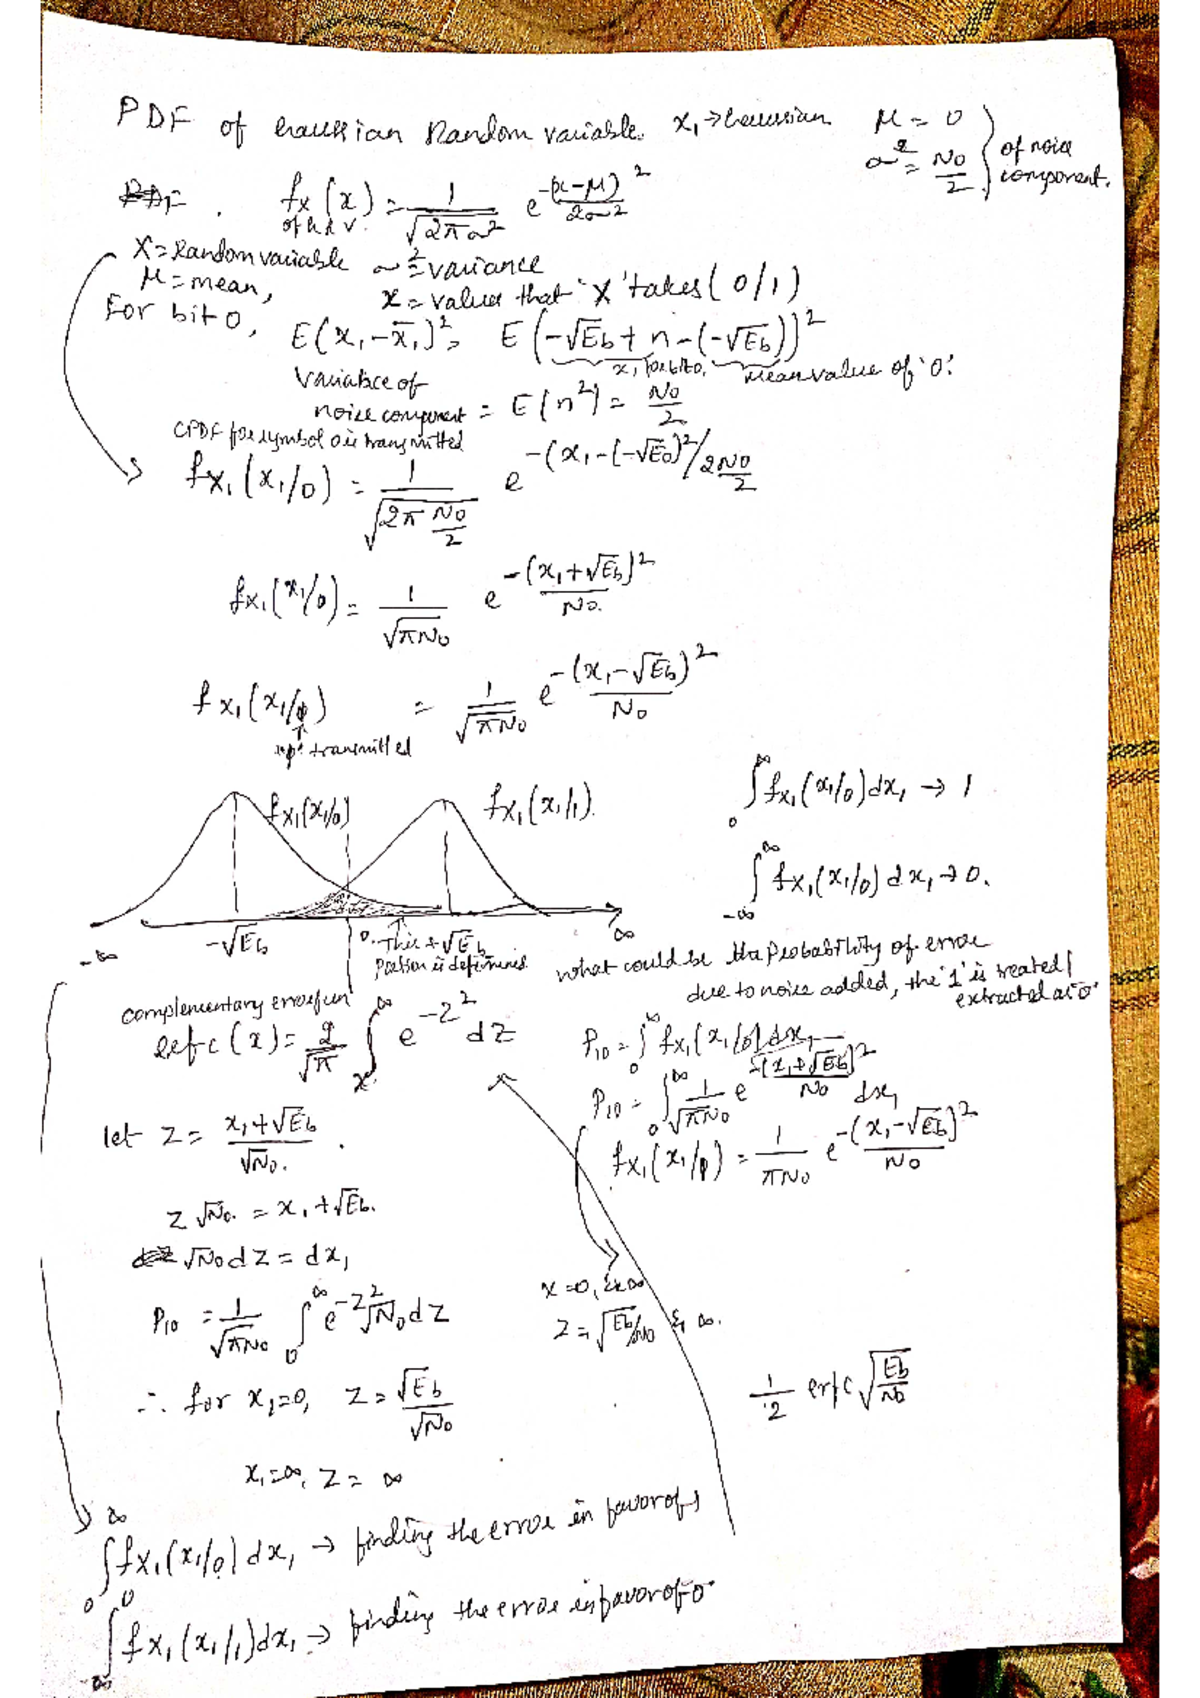 PDF of Gaussian Random variable. x₁→Gaussian μ = 0
σ² = N₀/2 } of noise component.
f_X(x) = 1/√(2πσ²) e^(-(x-μ)²/2σ²)
of G R V.
X = Random variable σ² = variance
μ = mean, x = value that 'X' takes (0/1)
For bit 0, E(x₁-x̄₁)² = E(-√Eb + n - (-√Eb))²
x₁ for bit 0. mean value of '0'.
Variance of
noise component = E(n²) = N₀/2
CPDF for symbol 0 is transmitted
f_X₁(x₁/0) = 1/√(2π N₀/2) e^(-(x₁-(-√Eb)²/2 N₀/2)
f_X₁(x₁/0) = 1/√(πN₀) e^(-(x₁+√Eb)²/N₀)
f_X₁(x₁/1) = 1/√(πN₀) e^(-(x₁-√Eb)²/N₀)
transmitted
f_X₁(x₁/0) f_X₁(x₁/1).
∫₀^∞ f_X₁(x₁/0) dx₁ → 1
∫₋∞^∞ f_X₁(x₁/0) dx₁ → 0.
-∞ -√Eb 0 +√Eb ∞
This portion is determined
what could be the probability of error
due to noise added, the '1' is treated/
extracted as '0'
complementary error fun
erfc(x) = 2/√π ∫ₓ^∞ e^(-z²) dz
P₁₀ = ∫₀^∞ f_X₁(x₁/0) dx₁
P₁₀ = ∫₀^∞ 1/√(πN₀) e^(-(x₁+√Eb)²/N₀) dx₁
let z = (x₁+√Eb)/√N₀.
f_X₁(x₁/1) = 1/πN₀ e^(-(x₁-√Eb)²/N₀)
z√N₀ = x₁+√Eb.
√N₀ dz = dx₁
x=0, & ∞
P₁₀ = 1/√(πN₀) ∫₀^∞ e^(-z²) √N₀ dz
z = √(Eb/N₀) & ∞.
∴ for x₁=0, z = √Eb/√N₀
1/2 erfc √(Eb/N₀)
x₁=∞, z = ∞
∫₀^∞ f_X₁(x₁/0) dx₁ → finding the error in favor of 1
∫₋∞^0 f_X₁(x₁/1) dx₁ → finding the error in favor of 0